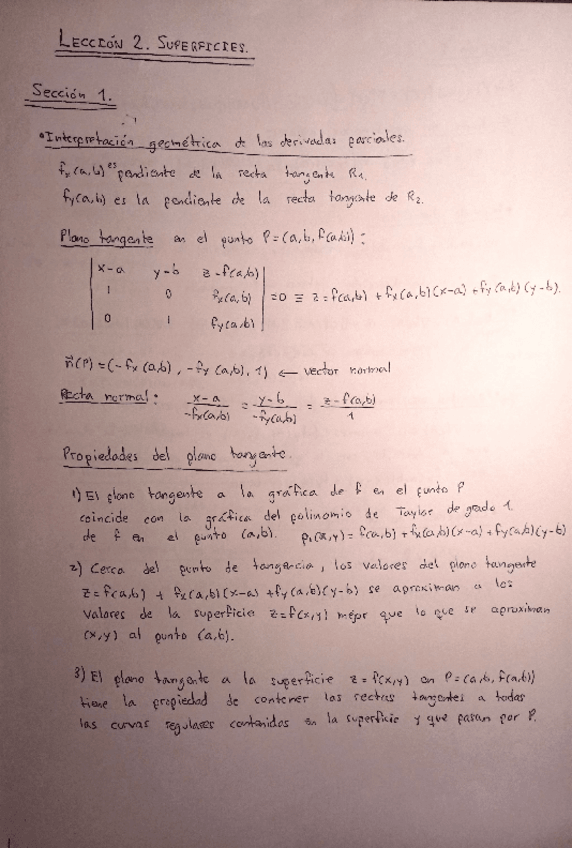 LECCIÓN 2. SUPERFICIES.
Sección 1.
• Interpretación geométrica de las derivadas parciales.
fx(a,b) es pendiente de la recta tangente R1.
fy(a,b) es la pendiente de la recta tangente de R2.
Plano tangente en el punto P=(a,b,f(a,b)):
| x-a y-b z-f(a,b) |
| 1 0 fx(a,b) | =0 ≡ z=f(a,b)+fx(a,b)(x-a)+fy(a,b)(y-b).
| 0 1 fy(a,b) |
n⃗(P)=(-fx(a,b), -fy(a,b), 1) ← vector normal
Recta normal: (x-a)/(-fx(a,b)) = (y-b)/(-fy(a,b)) = (z-f(a,b))/1
Propiedades del plano tangente.
1) El plano tangente a la gráfica de f en el punto P
coincide con la gráfica del polinomio de Taylor de grado 1
de f en el punto (a,b). p1(x,y)=f(a,b)+fx(a,b)(x-a)+fy(a,b)(y-b)
2) Cerca del punto de tangencia, los valores del plano tangente
z=f(a,b)+fx(a,b)(x-a)+fy(a,b)(y-b) se aproximan a los
valores de la superficie z=f(x,y) mejor que lo que se aproximan
(x,y) al punto (a,b).
3) El plano tangente a la superficie z=f(x,y) en P=(a,b,f(a,b))
tiene la propiedad de contener las rectas tangentes a todas
las curvas regulares contenidas en la superficie y que pasan por P.